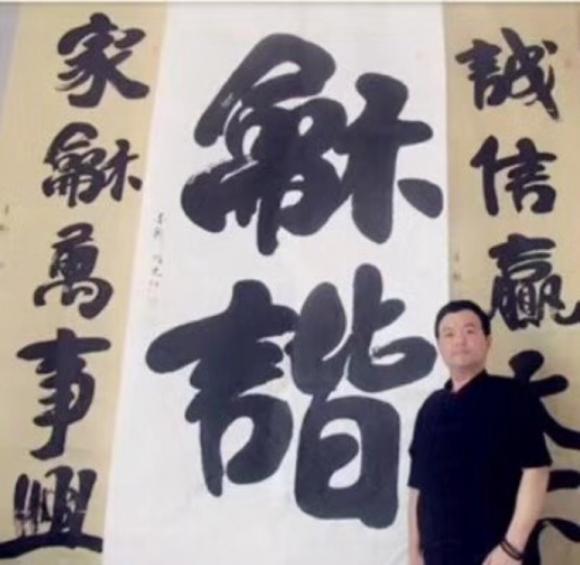 誠信贏天下
龢諧
家龢萬事興